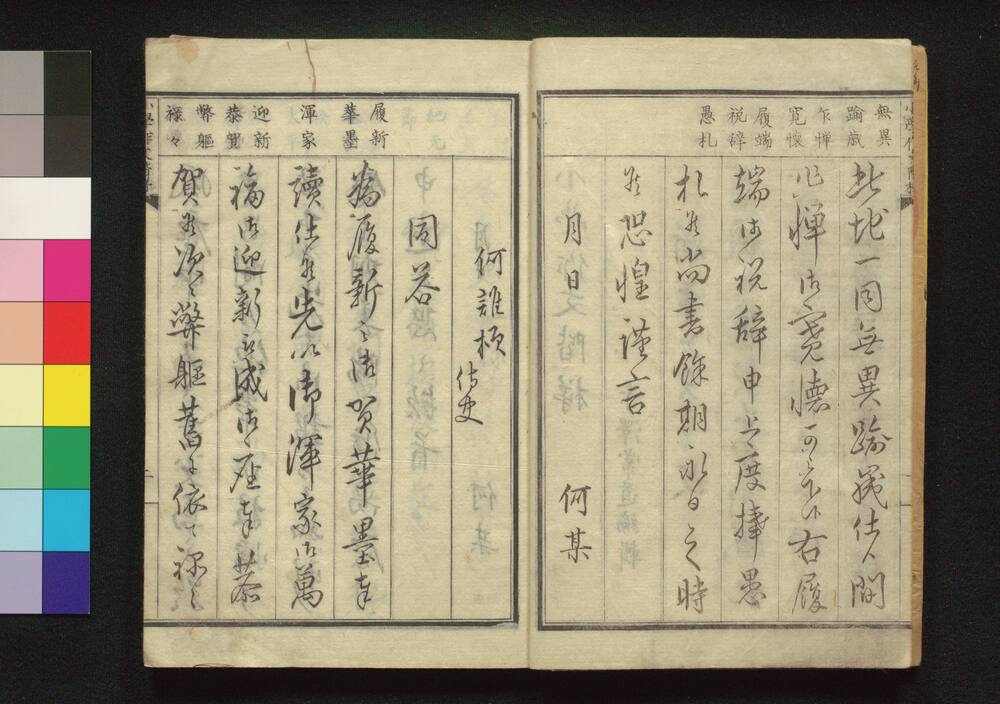 無異
踰歳
乍憚
寛懐
履端
税辞
愚札
此地一同無異踰歳仕候間
乍憚御寛懐可被下候右履
端御祝辞申上度捧愚
札候尚書餘期永日之時
候恐惶謹言
月日 何某
何誰様
侍史
同答
履新
華墨
渾家
迎新
恭賀
弊軀
禄々
為履新之御賀華墨奉
讀仕候先以御渾家御萬
福御迎新被成御座奉恭
賀候次ニ弊軀舊ニ依て禄々